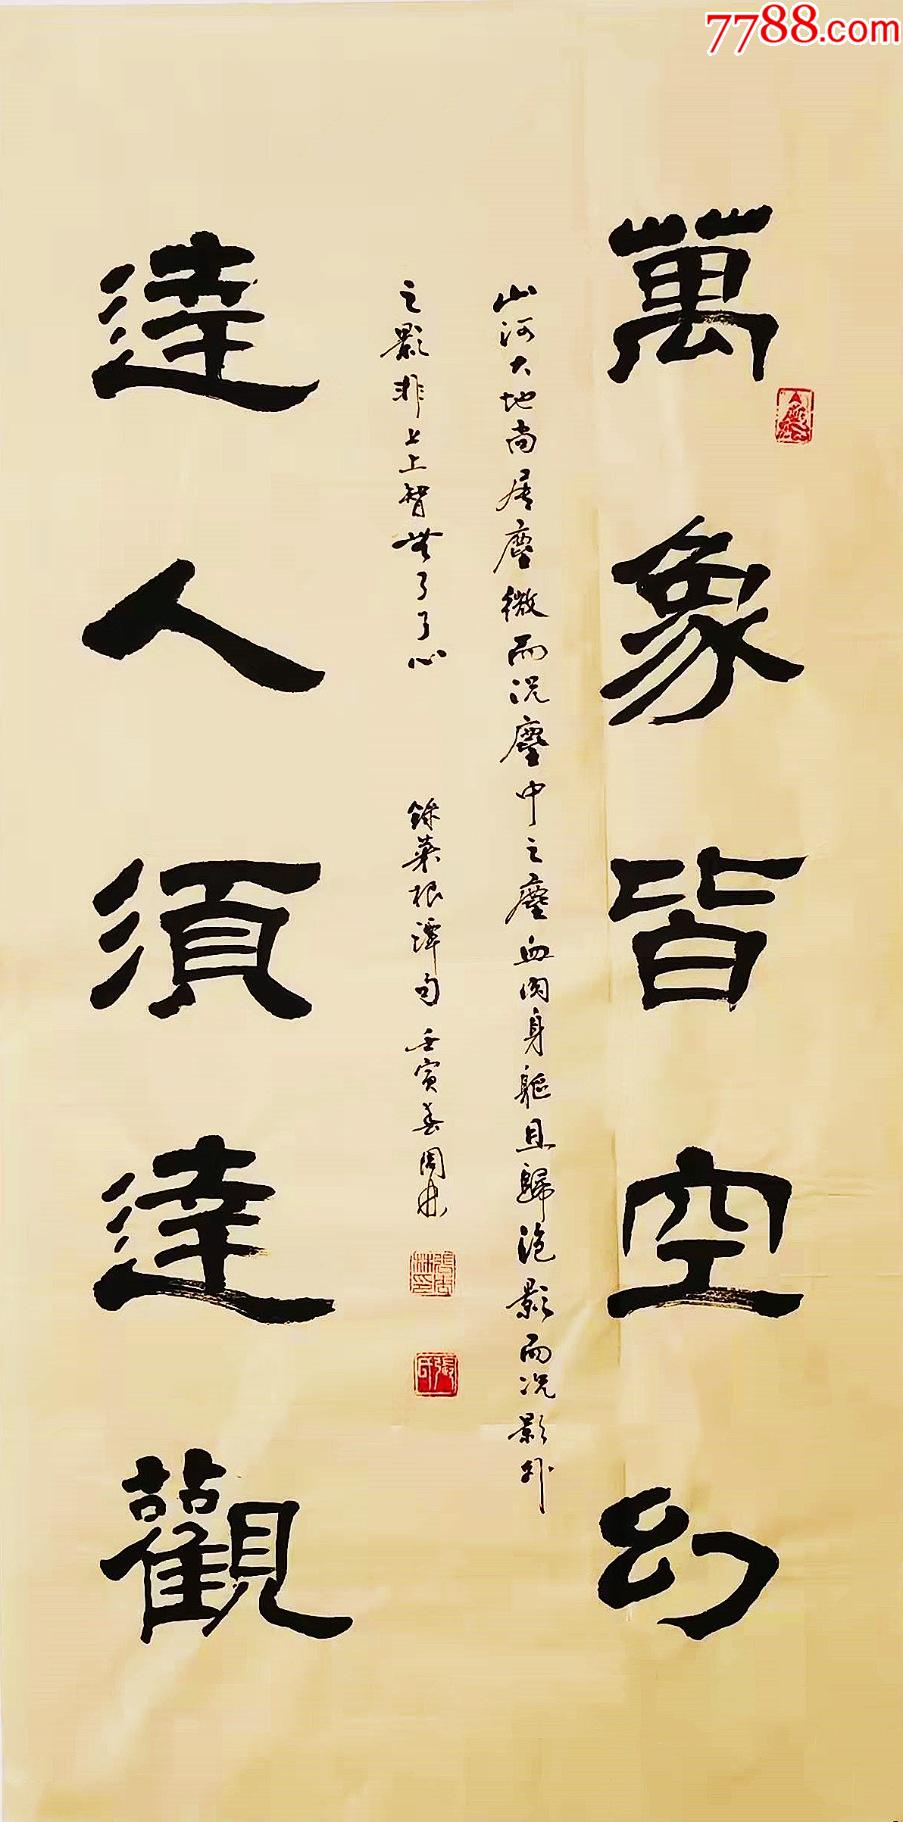 7788.com
萬象皆空幻
山河大地尚居塵微而況塵中之塵血肉身軀且歸泡影而況影外
之影非上上智無了了心
錄菜根譚句 壬寅春周林
達人須達觀